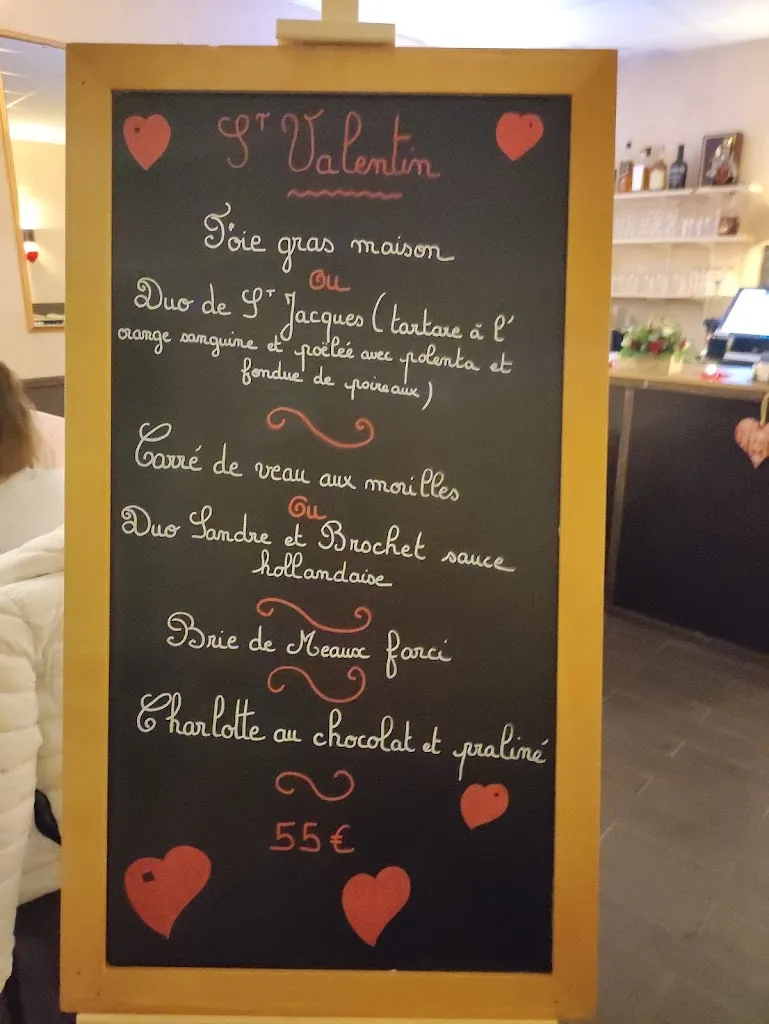 St Valentin
Foie gras maison
Ou
Duo de St Jacques (tartare à l'
orange sanguine et poëlée avec polenta et
fondue de poireaux)
Carré de veau aux morilles
Ou
Duo Sandre et Brochet sauce
hollandaise
Brie de Meaux farci
Charlotte au chocolat et praliné
55€